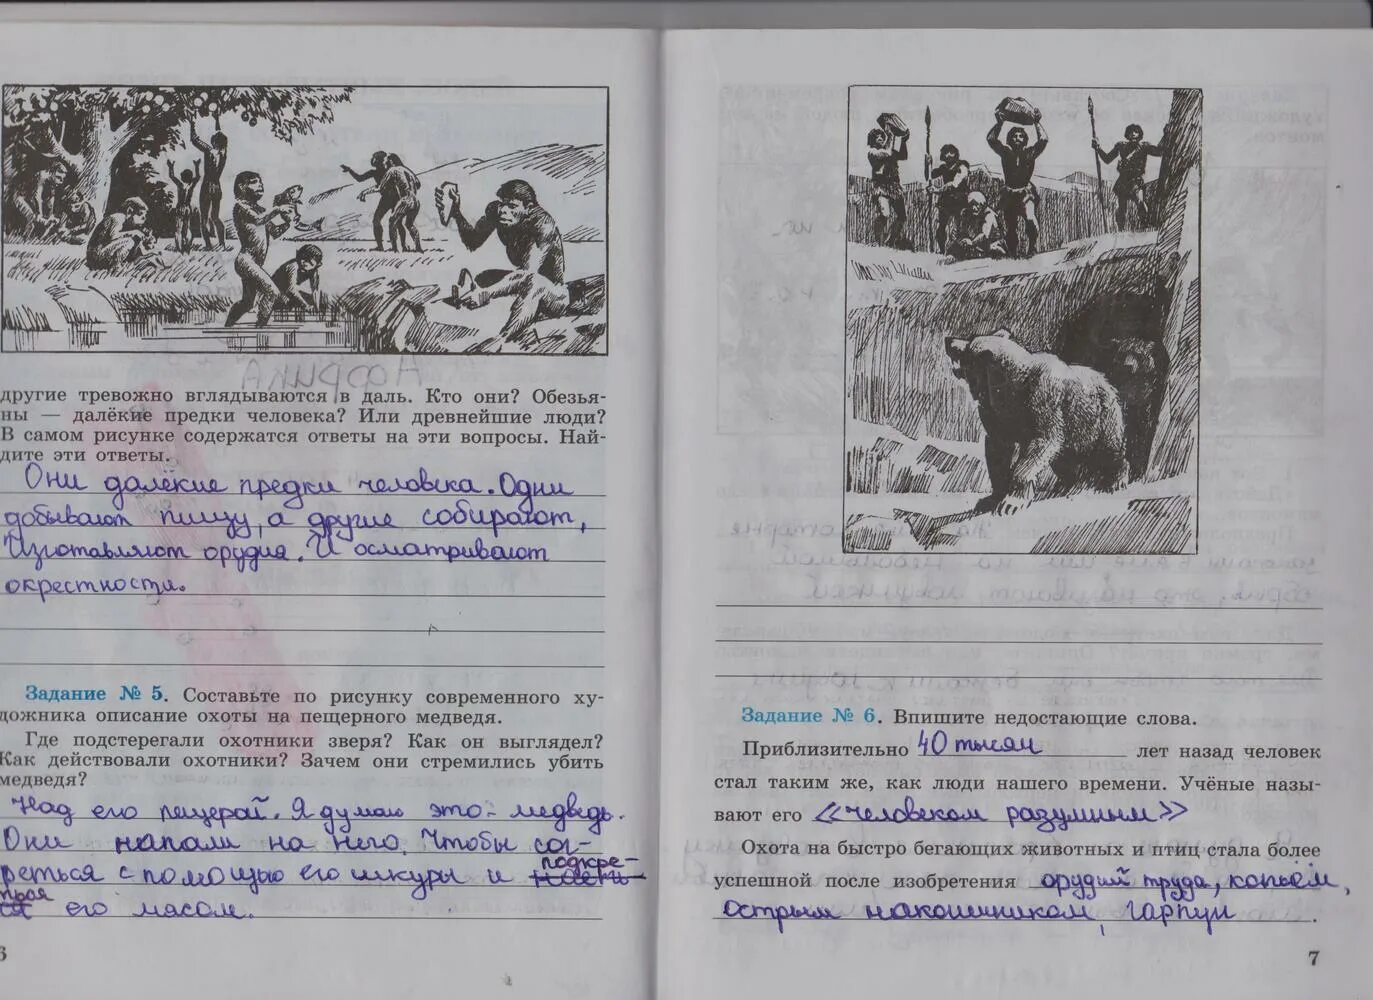 другие тревожно вглядываются в даль. Кто они? Обезья-
ны — далёкие предки человека? Или древнейшие люди?
В самом рисунке содержатся ответы на эти вопросы. Най-
дите эти ответы.
Они далёкие предки человека. Одни
добывают пищу, а другие собирают,
Изготавляют орудия. И осматривают
окрестности.
Задание № 5. Составьте по рисунку современного ху-
дожника описание охоты на пещерного медведя.
Где подстерегали охотники зверя? Как он выглядел?
Как действовали охотники? Зачем они стремились убить
медведя?
Над его пещерай. Я думаю это - медведь.
Они напали на него. Чтобы сог-
реться с помощью его шкуры и подкре-
пься его мясом.
6
Задание № 6. Впишите недостающие слова.
Приблизительно 40 тысяч лет назад человек
стал таким же, как люди нашего времени. Учёные назы-
вают его «человеком разумным»
Охота на быстро бегающих животных и птиц стала более
успешной после изобретения орудий труда, копьём,
острым наконечником, гарпун.
7
Африка